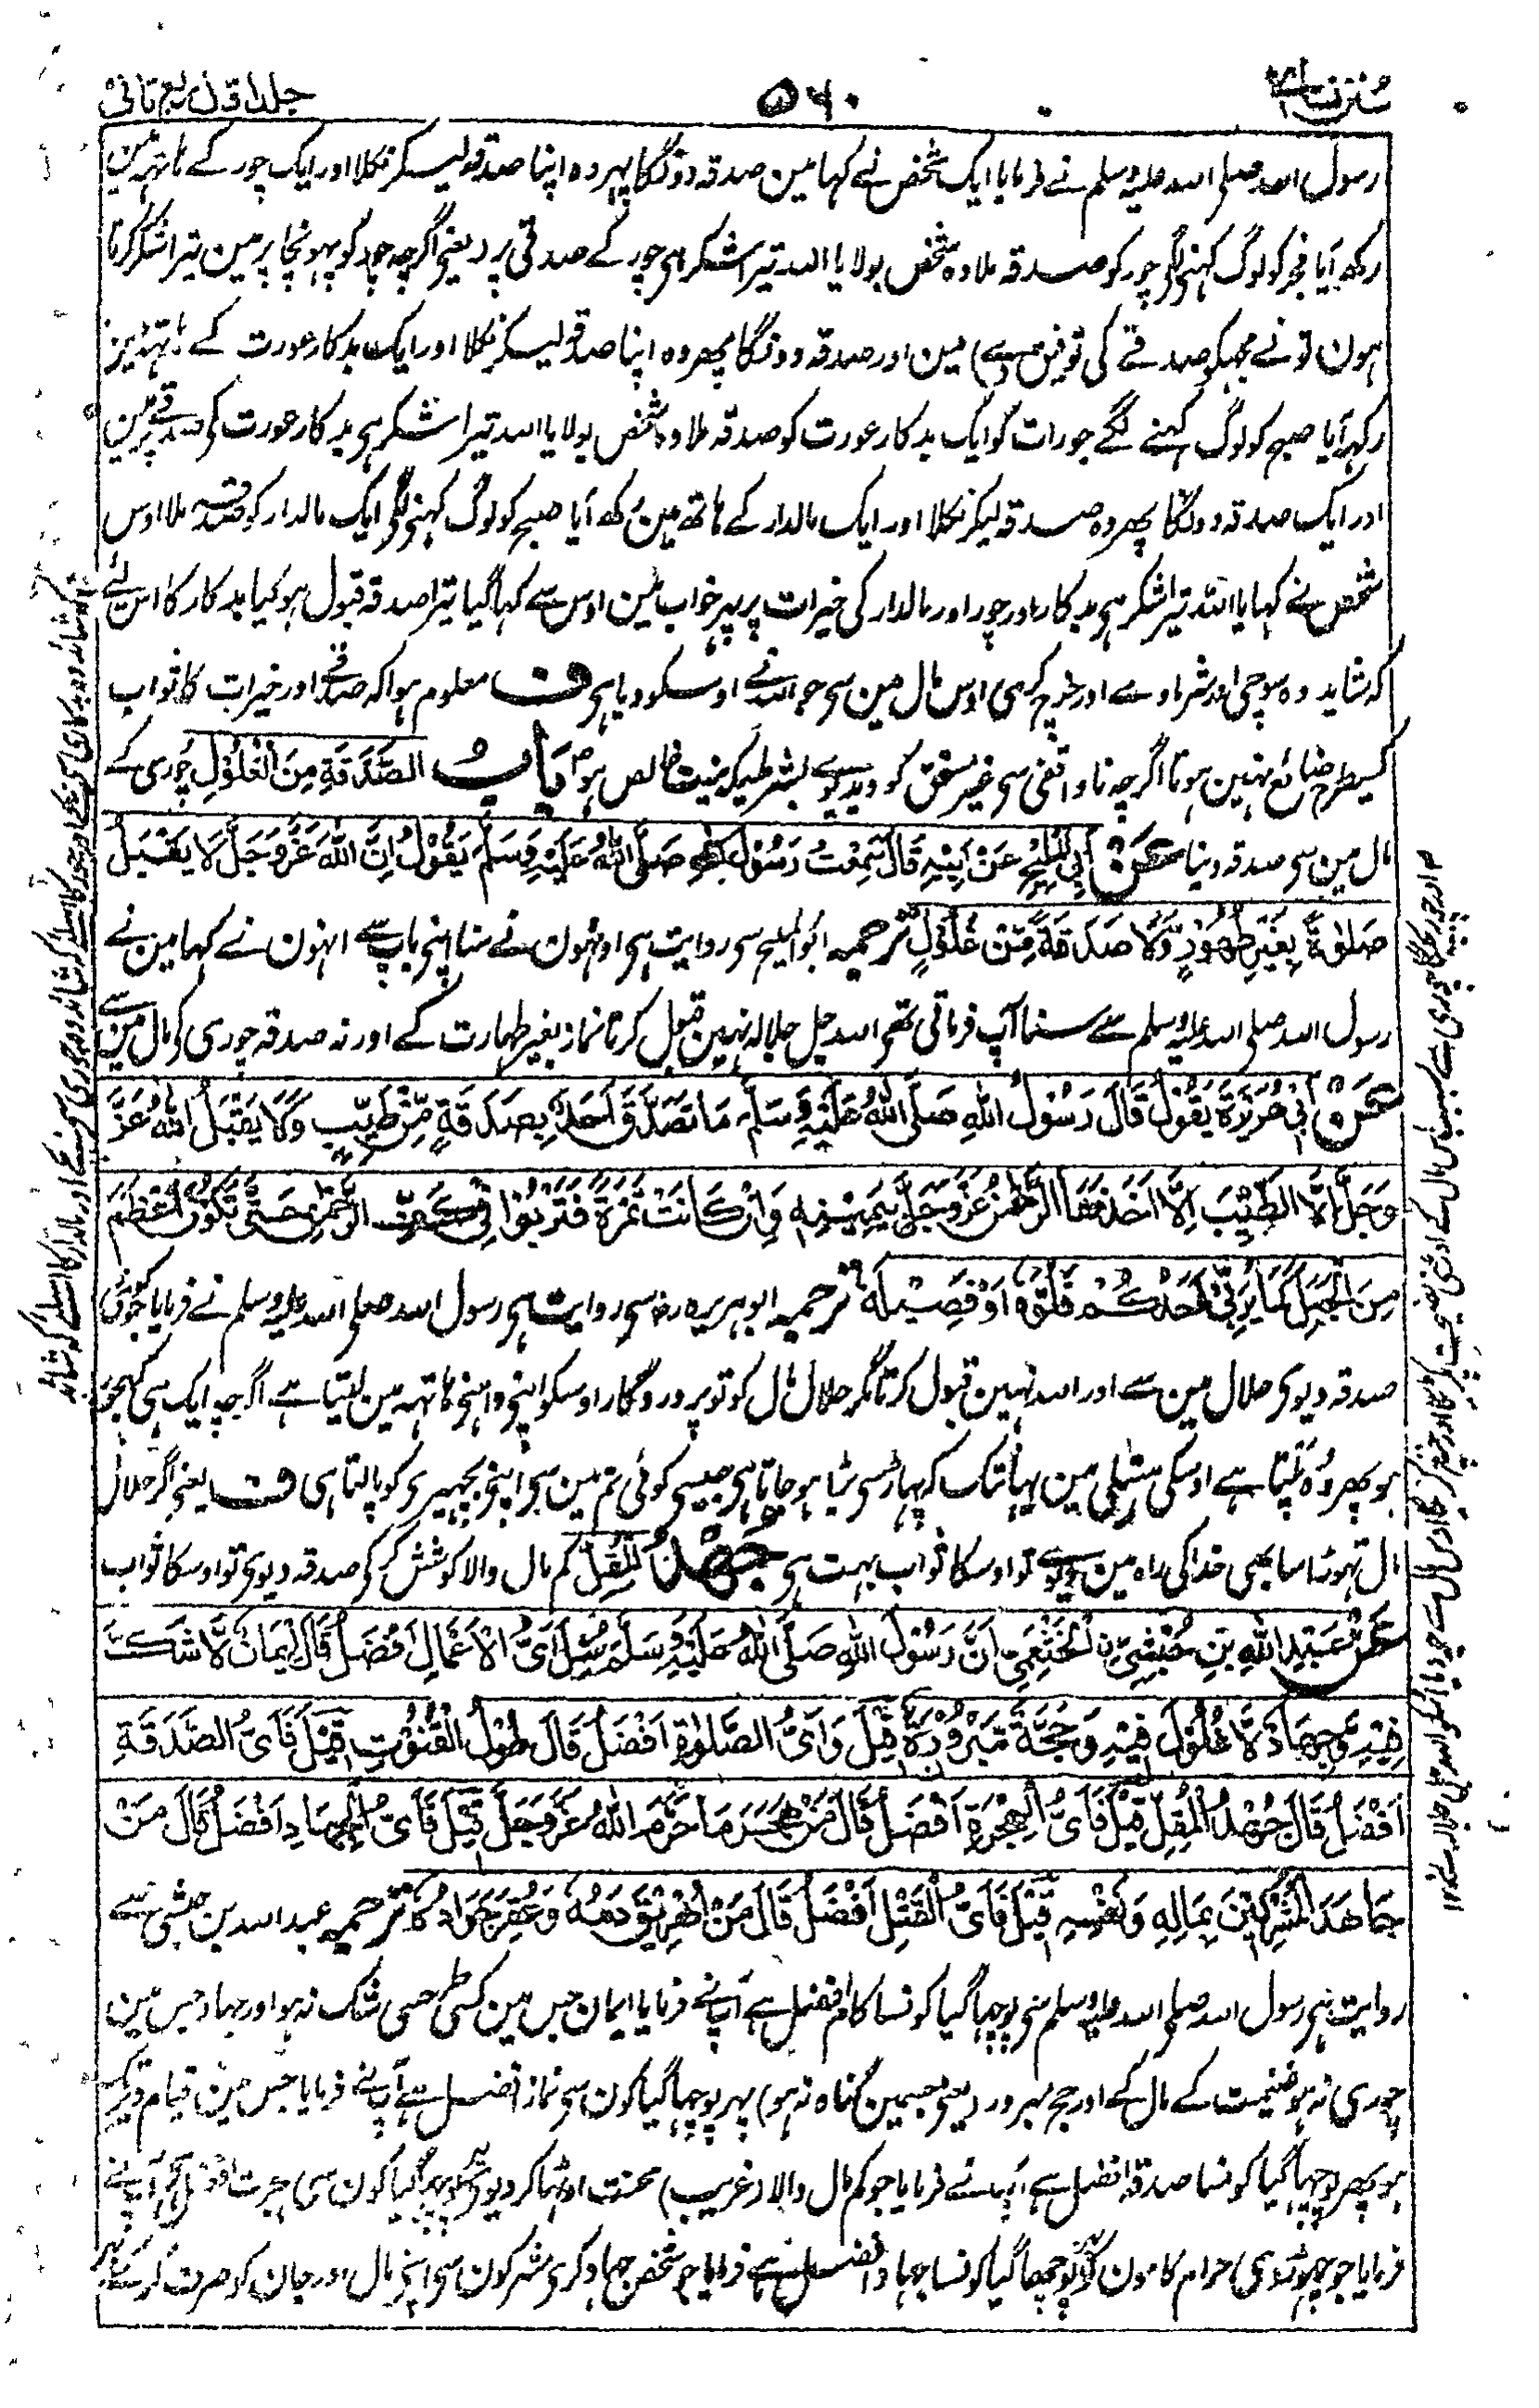 سنن نسائی
۵۶۰
جلد اول ربع ثانی
رسول اللہ صلی اللہ علیہ وسلم نے فرمایا ایک شخص نے کہا مین صدقہ دونگا پہر وہ اپنا صدقہ لیکر نکلا اور ایک چور کے ہاتہہ مین
رکھ آیا فجر کو لوگ کہنے لگے چور کو صدقہ ملا وہ شخص بولا یا اللہ تیرا شکر ہی چور کے صدقی پر (یعنی اگرچہ چور کو پہونچا پر مین تیرا شکر کرتا
ہون تو نے مجہکو صدقے کی توفیق دی) مین اور صدقہ دونگا پھر وہ اپنا صدقہ لیکر نکلا اور ایک بدکار عورت کے ہاتہہ مین
رکہہ آیا صبح کو لوگ کہنے لگے جو رات کو ایک بدکار عورت کو صدقہ ملا وہ شخص بولا یا اللہ تیرا شکر ہی بدکار عورت کی صدقے پر مین
اور ایک صدقہ دونگا پھر وہ صدقہ لیکر نکلا اور ایک مالدار کے ہاتھ مین رکھ آیا صبح کو لوگ کہنی لگی ایک مالدار کو صدقہ ملا اوس
شخص نے کہا یا اللہ تیرا شکر ہی بدکار اور چور اور مالدار کی خیرات پر پہر خواب مین اوس سے کہا گیا تیرا صدقہ قبول ہو گیا بدکار کا اس لیے
کہ شاید وہ سوچی اور شرماوے اور خرچ کری اوس مال مین سی جو اللہ نے اوسکو دیا ہی ف معلوم ہوا کہ صدقے اور خیرات کا ثواب
کسیطرح ضائع نہین ہوتا اگرچہ ناواقفی سی غیر مستحق کو دیدیوے بشرطیکہ نیت خالص ہو بَابُ الصَّدَقَةِ مِنَ الْغُلُوْلِ چوری کے
مال مین سی صدقہ دینا عَنْ اَبِي الْمَلِيْحِ عَنْ اَبِيْهِ قَالَ سَمِعْتُ رَسُوْلَ اللّٰهِ صَلَّى اللّٰهُ عَلَيْهِ وَسَلَّمَ يَقُوْلُ اِنَّ اللّٰهَ عَزَّ وَجَلَّ لَا يَقْبَلُ
صَلٰوةً بِغَيْرِ طُهُوْرٍ وَّلَا صَدَقَةً مِّنْ غُلُوْلٍ ترجمہ ابو الملیح سی روایت ہی اونہون نے سنا اپنی باپ سے انہون نے کہا مین نے
رسول اللہ صلی اللہ علیہ وسلم سے سنا آپ فرماتی تھی اللہ جل جلالہ نہین قبول کرتا نماز بغیر طہارت کے اور نہ صدقہ چوری کی مال مین سے
عَنْ اَبِيْ هُرَيْرَةَ يَقُوْلُ قَالَ رَسُوْلُ اللّٰهِ صَلَّى اللّٰهُ عَلَيْهِ وَسَلَّمَ مَا تَصَدَّقَ اَحَدٌ بِصَدَقَةٍ مِّنْ طَيِّبٍ وَّلَا يَقْبَلُ اللّٰهُ عَزَّ
وَجَلَّ اِلَّا الطَّيِّبَ اِلَّا اَخَذَهَا الرَّحْمٰنُ عَزَّ وَجَلَّ بِيَمِيْنِهٖ وَاِنْ كَانَتْ تَمْرَةً فَتَرْبُوْا فِيْ كَفِّ الرَّحْمٰنِ حَتّٰى تَكُوْنَ اَعْظَمَ
مِنَ الْجَبَلِ كَمَا يُرَبِّيْ اَحَدُكُمْ فَلُوَّهٗ اَوْ فَصِيْلَهٗ ترجمہ ابو ہریرہ رض سی روایت ہی رسول اللہ صلی اللہ علیہ وسلم نے فرمایا جو کوئی
صدقہ دیوی حلال مین سے اور اللہ نہین قبول کرتا مگر حلال مال کو تو پروردگار اوسکو اپنی داہنی ہاتہہ مین لیتا ہے اگرچہ ایک ہی کہجور
ہو پھر وہ پلتا ہے اوسکی ہتہیلی مین یہانتک کہ پہاڑ سی بڑا ہو جاتا ہی جیسی کوئی تم مین سی اپنی بچہیری کو پالتا ہی ف یعنی اگر حلال
مال تہوڑا سا بھی خدا کی راہ مین دیوے تو اوسکا ثواب بہت ہی جُهْدُ الْمُقِلِّ کم مال والا کوشش کر کر صدقہ دیوی تو اوسکا ثواب
عَنْ عَبْدِ اللّٰهِ بْنِ حُبْشِيِّ نِ الْخَثْعَمِيِّ اَنَّ رَسُوْلَ اللّٰهِ صَلَّى اللّٰهُ عَلَيْهِ وَسَلَّمَ سُئِلَ اَيُّ الْاَعْمَالِ اَفْضَلُ قَالَ اِيْمَانٌ لَّا شَكَّ
فِيْهِ وَجِهَادٌ لَّا غُلُوْلَ فِيْهِ وَحَجَّةٌ مَّبْرُوْرَةٌ قِيْلَ وَاَيُّ الصَّلٰوةِ اَفْضَلُ قَالَ طُوْلُ الْقُنُوْتِ قِيْلَ فَاَيُّ الصَّدَقَةِ
اَفْضَلُ قَالَ جُهْدُ الْمُقِلِّ قِيْلَ فَاَيُّ الْهِجْرَةِ اَفْضَلُ قَالَ مَنْ هَجَرَ مَا حَرَّمَ اللّٰهُ عَزَّ وَجَلَّ قِيْلَ فَاَيُّ الْجِهَادِ اَفْضَلُ قَالَ مَنْ
جَاهَدَ الْمُشْرِكِيْنَ بِمَالِهٖ وَنَفْسِهٖ قِيْلَ فَاَيُّ الْقَتْلِ اَفْضَلُ قَالَ مَنْ اُهْرِيْقَ دَمُهٗ وَعُقِرَ جَوَادُهٗ ترجمہ عبد اللہ بن حبشی سے
روایت ہی رسول اللہ صلی اللہ علیہ وسلم سی پوچہا گیا کونسا کام افضل ہے آپنے فرمایا ایمان جس مین کسی طرحسی شک نہ ہو اور جہاد جس مین
چوری نہ ہو غنیمت کے مال کے اور حج مبرور (یعنی جسمین گناہ نہ ہو) پہر پوچہا گیا کون سی نماز افضل ہے آپنے فرمایا جس مین قیام دیر تک
ہو پھر پوچہا گیا کونسا صدقہ افضل ہے آپ نے فرمایا جو کم مال والا (غریب) محنت اوٹھا کر دیوی پہر پوچہا گیا کون سی ہجرت افضل ہی آپنے
فرمایا جو چہوڑ دی حرام کامون کو پوچھا گیا کونسا جہاد افضل ہے فرمایا جو شخص جہاد کری مشرکون سی اپنی مال اور جان کو صرف کر کے
کہ شائد وہ بدکاری سی بچے اور چور کا اسلے کہ شائد وہ چوری سی بچے اور مالدار کا اسلے کہ شائد